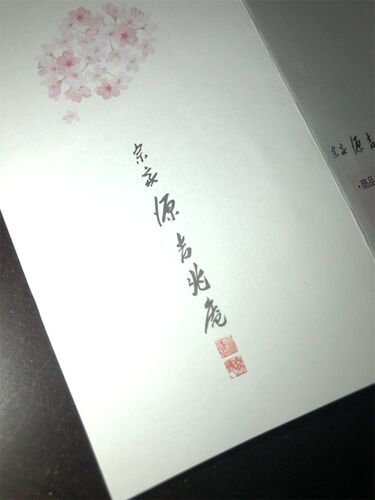 宗家 源吉兆庵
宗家 源吉
・商品